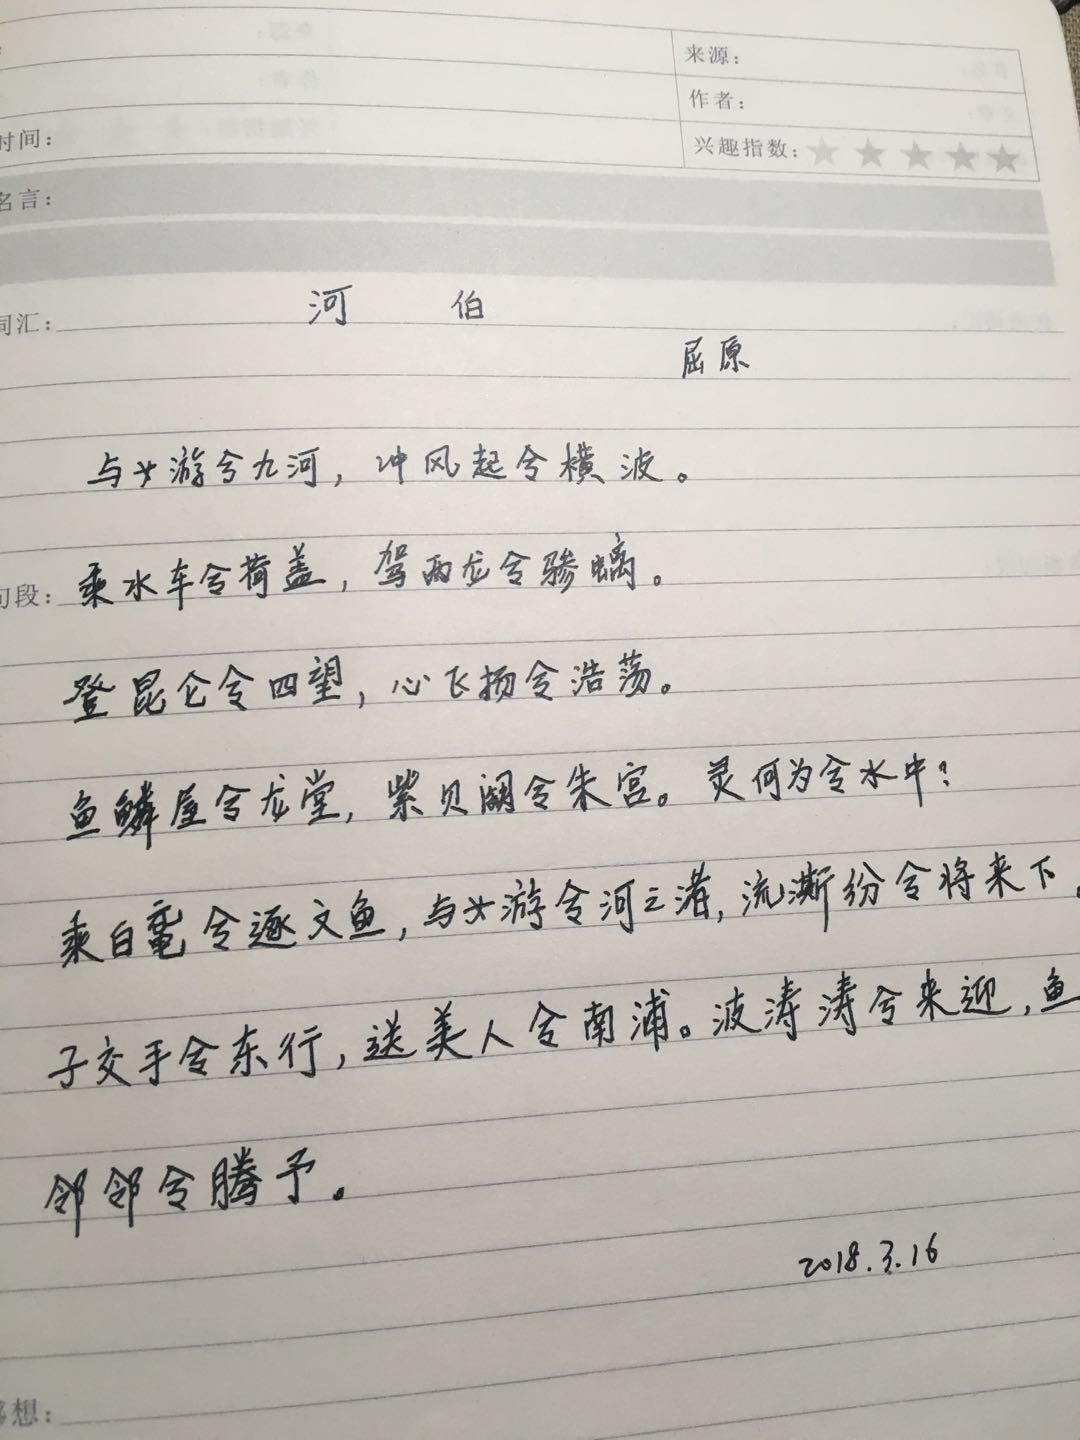 来源：
作者：
时间：
兴趣指数：
名言：
词汇：
河 伯
屈原
与女游兮九河，冲风起兮横波。
句段：
乘水车兮荷盖，驾两龙兮骖螭。
登昆仑兮四望，心飞扬兮浩荡。
鱼鳞屋兮龙堂，紫贝阙兮朱宫。灵何为兮水中？
乘白鼋兮逐文鱼，与女游兮河之渚，流澌纷兮将来下。
子交手兮东行，送美人兮南浦。波涛涛兮来迎，鱼
邻邻兮腾予。
2018.3.16
感想：